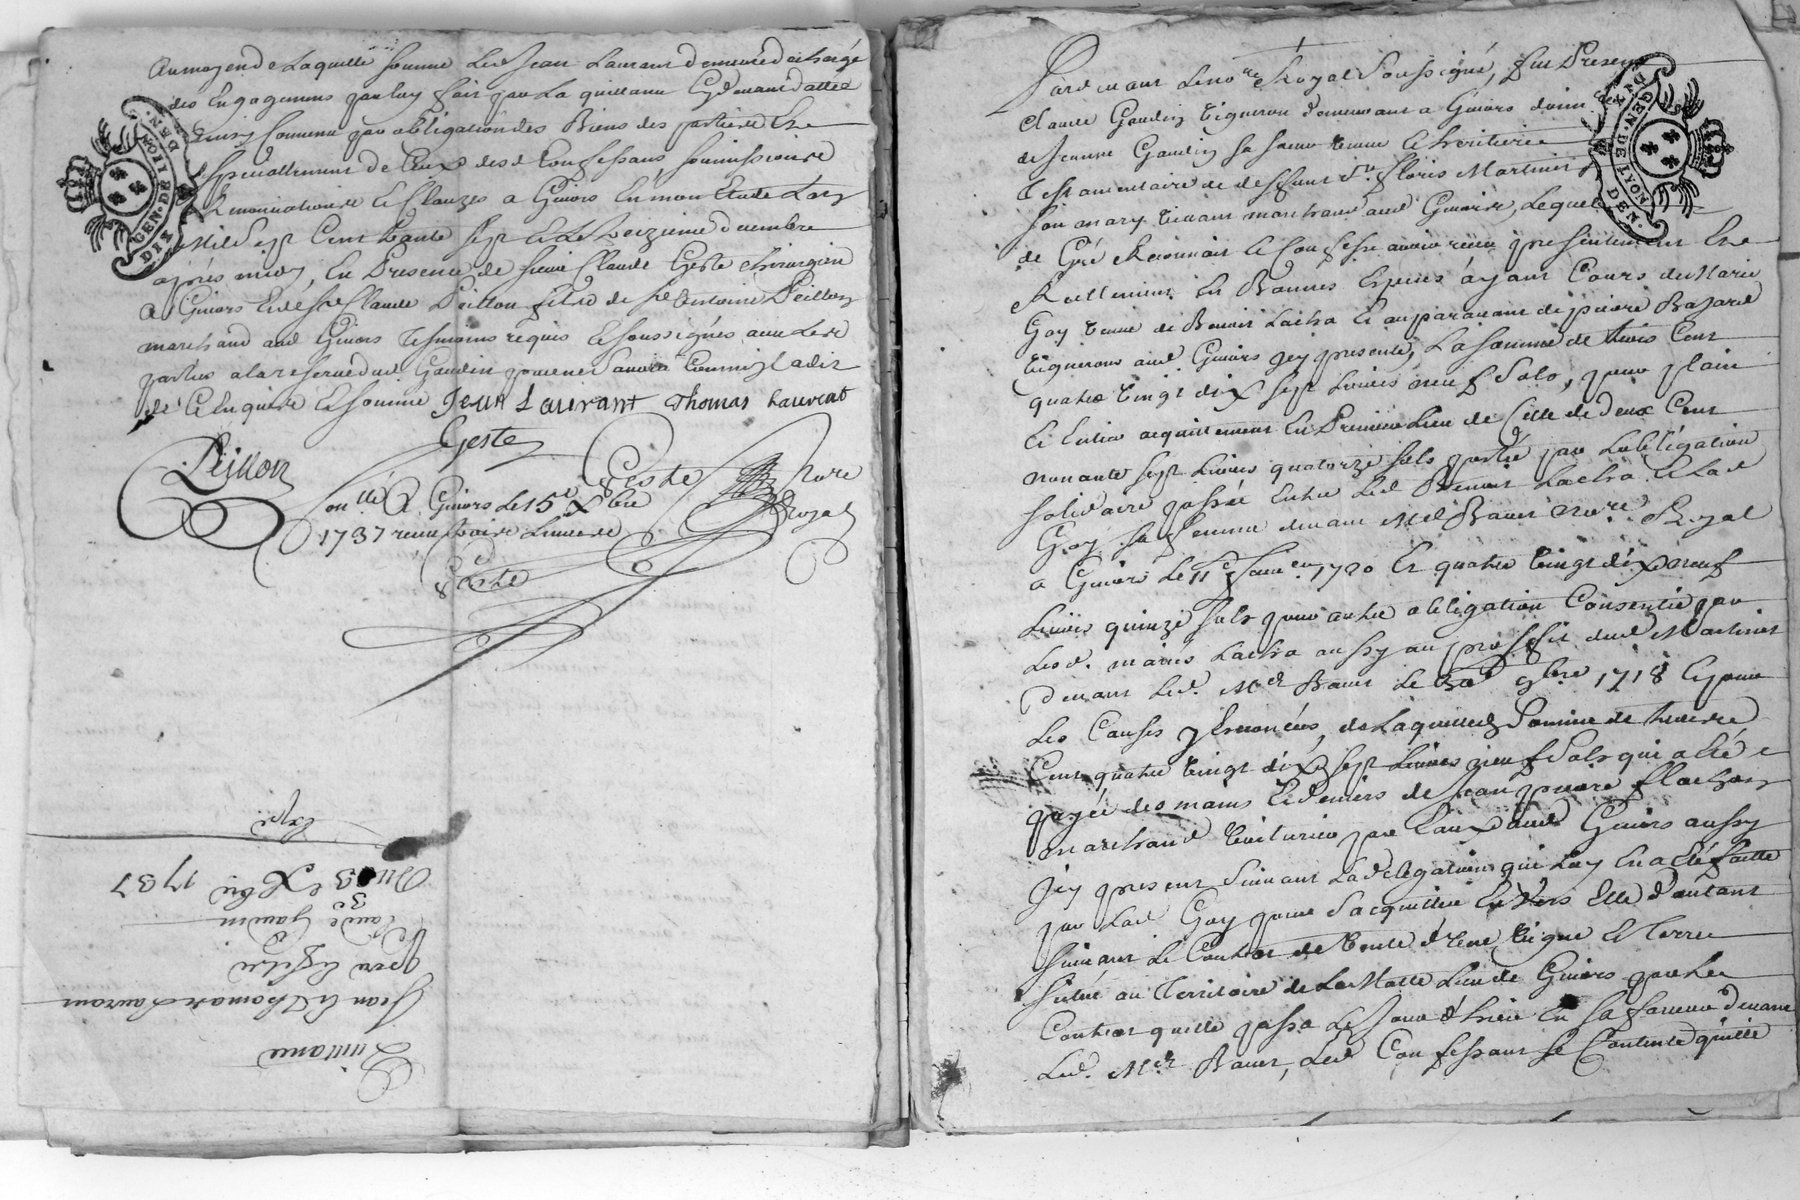 Aumoyen de Laquelle somme Led Jean Laurant demeure déchargé
des Engagemens
par obligation des Biens des parties Et
Speciallement de Ceux des d Confessans, soumissions
Renonciations Et Clauzes a Givors En mon Etude L'an
Mil Sept Cent trante Sept Et Le treizieme decembre
après midy, En Presence de sieur Claude Geste chirurgien
A Givors Et de Sr Claude Peillon fils de Sr Antoine Peillon
marchand aud Givors Tesmoins requis Et soussignés avec Led
parties a la reserve dud Gaudin pour ne Sçavoir
de Ce Enquis Et sommé Jean Laurant Thomas Laurent
Geste
Peillon
Geste Nore Royal
Conllé A Givors Le 15e Xbre
1737 reçu
Geste
Quittance
Jean Et Thomas Laurans
pere Et fils
Claude Gaudin
Du 13e Xbre 1737
Expé
GEN. DE LION
DIX DEN.
Pardevant Le nore Royal Soussigné, fut Present
Claude Gaudin Vigneron demeurant a Givors
de Jeanne Gaudin sa sœur veuve Et heritiere
Testamentaire de deffunt Sr floris Martinet
son mary vivant marchand aud Givors, Lequel
de Gré Reconnait Et Confesse avoir reçu presentement Et
Reellement En Bonnes Especes ayant Cours de Marie
Goy veuve de Benoit Lacha Et auparavant de pierre Bajard
vigneron aud Givors Jcy presente, La somme de trois Cent
quatre vingt dix Sept Livres neuf Sols, pour plain
Et Entier acquittement En Premier Lieu de Celle de deux Cent
nonante sept Livres quatorze sols portée par Lobligation
solidaire passée Entre Led Benoit Lacha Et Lad
Goy sa femme devant Me Bauer nore Royal
a Givors Le 11e Janv. 1720 Et quatre vingt dix neuf
Livres quinze sols pour autre obligation Consentie par
Lesd. mariés Lacha aussy au proffit dud Martinet
devant Led. Me Bauer Le 9bre 1718 Et pour
Les Causes y Enoncées, de Laquelle Somme de trois
Cent quatre vingt dix sept Livres neuf Sols qui a Eté
payée des mains Et deniers de Jean pierre flachon
marchand voiturier par Eaux aud Givors aussy
Jcy present Suivant La delegation qui Luy En a Eté faitte
par Lad Goy pour S'acquitter Envers Elle d'autant
suivant Le Contrat de Vente d'Une vigne Et Terre
Située au Territoire de La Lieu de Givors par Le
Contrat quelle passa Le Jour d'hier En sa faveur devant
Led. Me Bauer, Led Confessant se Contente quitte
GEN. DE LYON
DIX DEN.